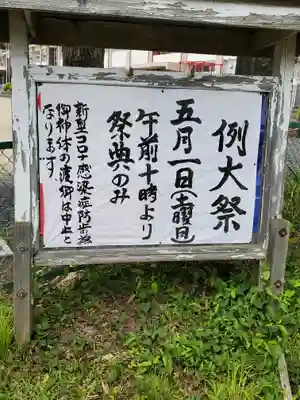 例大祭
五月一日(土曜日)
午前十時より
祭典のみ
新型コロナ感染症防止為
御神体の渡御は中止と
なります